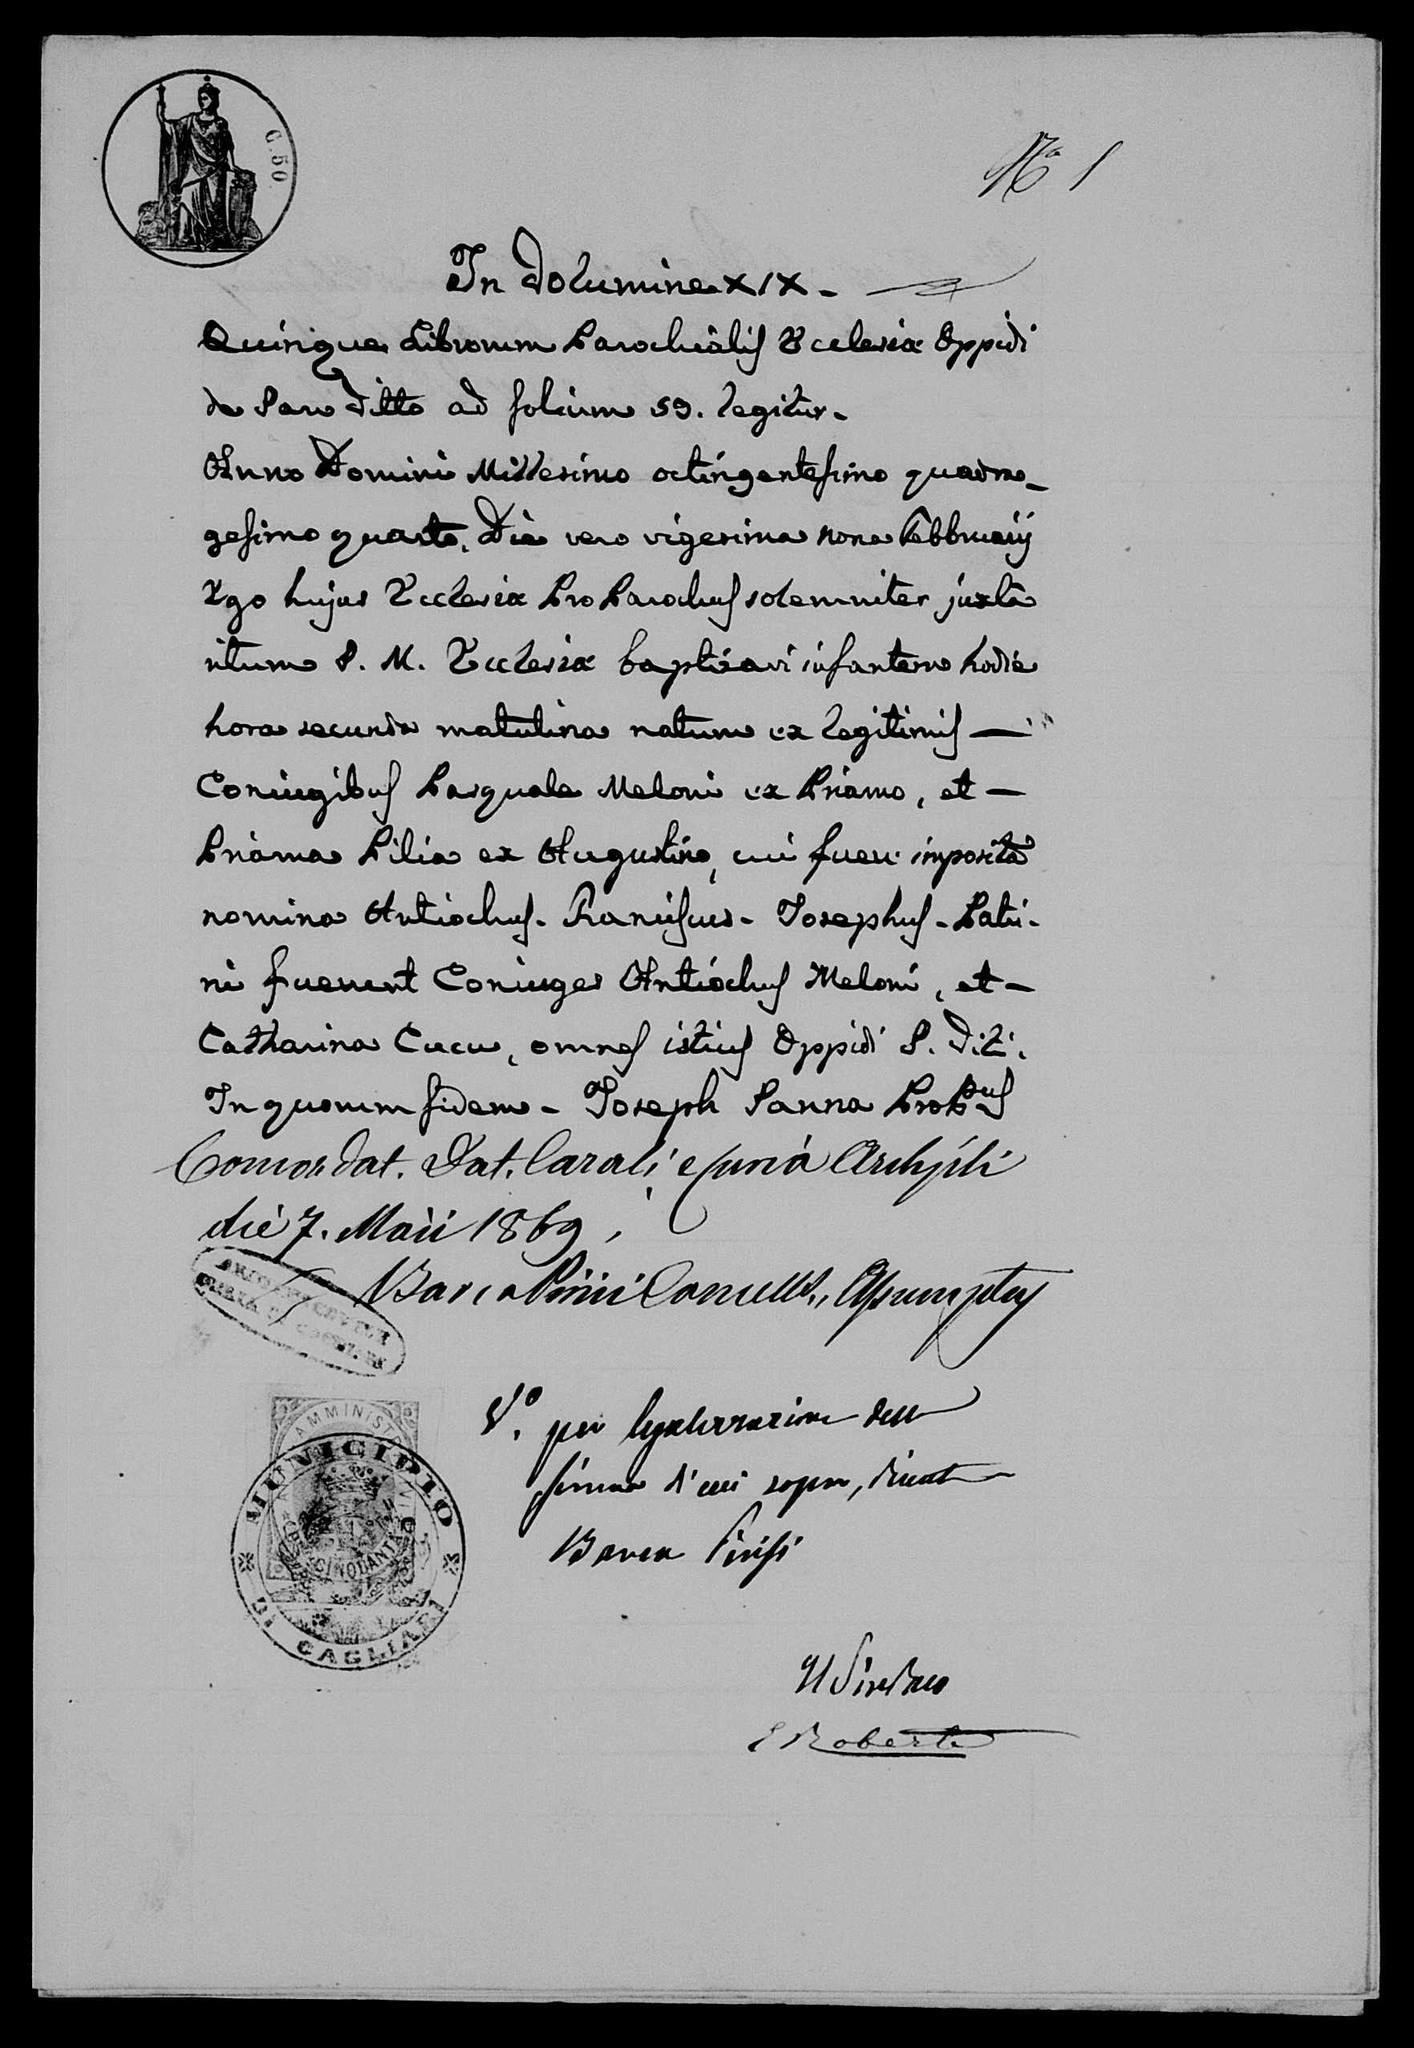 C. 50
No 1
In Volumine XIX.
Quinque Librorum Parochialis Ecclesiæ Oppidi
de San Vitto ad folium 59. legitur.
Anno Domini Millesimo octingentesimo quadra-
gesimo quarto, Die vero vigesima nona Febbruarij
Ego hujus Ecclesiæ Pro Parochus solemniter juxta
ritum S. M. Ecclesiæ baptizavi infantem hodie
hora secunda matutina natum ex legitimis —
Coniugibus Pasquale Meloni ex Priamo, et —
Priama Pilia ex Augustino, cui fuere imposita
nomina Antiochus - Franciscus - Josephus - Patri-
ni fuerunt Coniuges Antiochus Meloni, et —
Catharina Cucu, omnes istius Oppidi S. Viti.
In quorum fidem - Joseph Sanna ProPus
Concordat. Dat. Carali, e Curia Archpli
die 7. Maii 1869,
Barca Assumptus
Vo. per legalizzazione della
firma di cui sopra,
Barca
MUNICIPIO DI CAGLIARI
AMMINIST
CINQUANTA
Il Sindaco
E Roberti